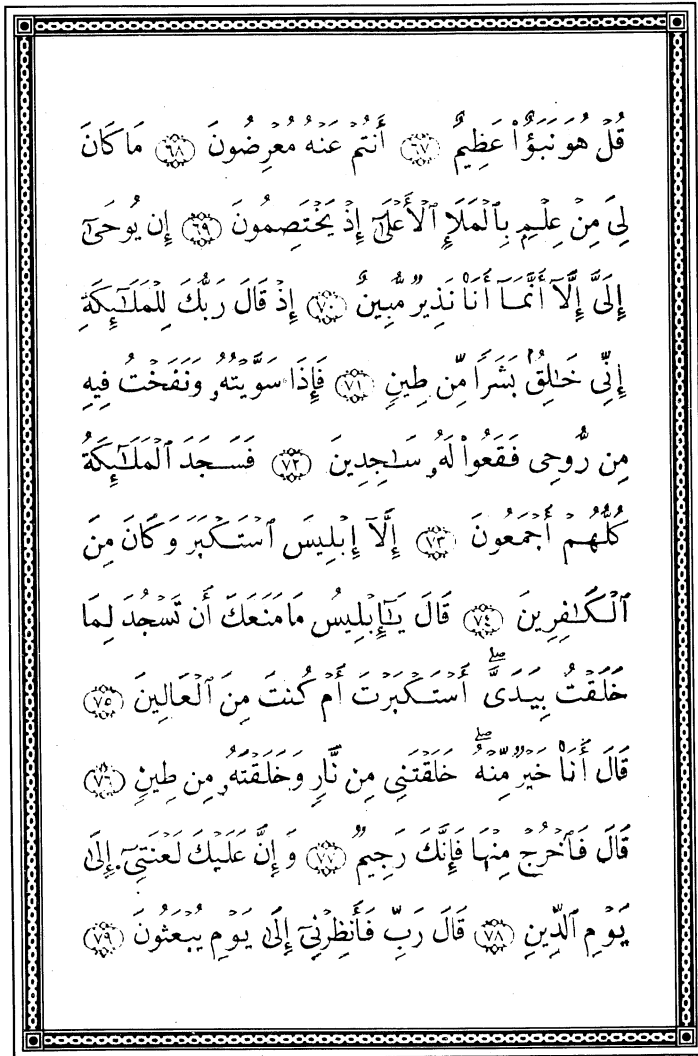 قُلْ هُوَ نَبَؤٌا۟ عَظِيمٌ ﴿٦٧﴾ أَنتُمْ عَنْهُ مُعْرِضُونَ ﴿٦٨﴾ مَا كَانَ
لِىَ مِنْ عِلْمٍۭ بِٱلْمَلَإِ ٱلْأَعْلَىٰٓ إِذْ يَخْتَصِمُونَ ﴿٦٩﴾ إِن يُوحَىٰٓ
إِلَىَّ إِلَّآ أَنَّمَآ أَنَا۠ نَذِيرٌ مُّبِينٌ ﴿٧٠﴾ إِذْ قَالَ رَبُّكَ لِلْمَلَـٰٓئِكَةِ
إِنِّى خَـٰلِقٌۢ بَشَرًا مِّن طِينٍ ﴿٧١﴾ فَإِذَا سَوَّيْتُهُۥ وَنَفَخْتُ فِيهِ
مِن رُّوحِى فَقَعُوا۟ لَهُۥ سَـٰجِدِينَ ﴿٧٢﴾ فَسَجَدَ ٱلْمَلَـٰٓئِكَةُ
كُلُّهُمْ أَجْمَعُونَ ﴿٧٣﴾ إِلَّآ إِبْلِيسَ ٱسْتَكْبَرَ وَكَانَ مِنَ
ٱلْكَـٰفِرِينَ ﴿٧٤﴾ قَالَ يَـٰٓإِبْلِيسُ مَا مَنَعَكَ أَن تَسْجُدَ لِمَا
خَلَقْتُ بِيَدَىَّ ۖ أَسْتَكْبَرْتَ أَمْ كُنتَ مِنَ ٱلْعَالِينَ ﴿٧٥﴾
قَالَ أَنَا۠ خَيْرٌ مِّنْهُ ۖ خَلَقْتَنِى مِن نَّارٍ وَخَلَقْتَهُۥ مِن طِينٍ ﴿٧٦﴾
قَالَ فَٱخْرُجْ مِنْهَا فَإِنَّكَ رَجِيمٌ ﴿٧٧﴾ وَإِنَّ عَلَيْكَ لَعْنَتِىٓ إِلَىٰ
يَوْمِ ٱلدِّينِ ﴿٧٨﴾ قَالَ رَبِّ فَأَنظِرْنِىٓ إِلَىٰ يَوْمِ يُبْعَثُونَ ﴿٧٩﴾